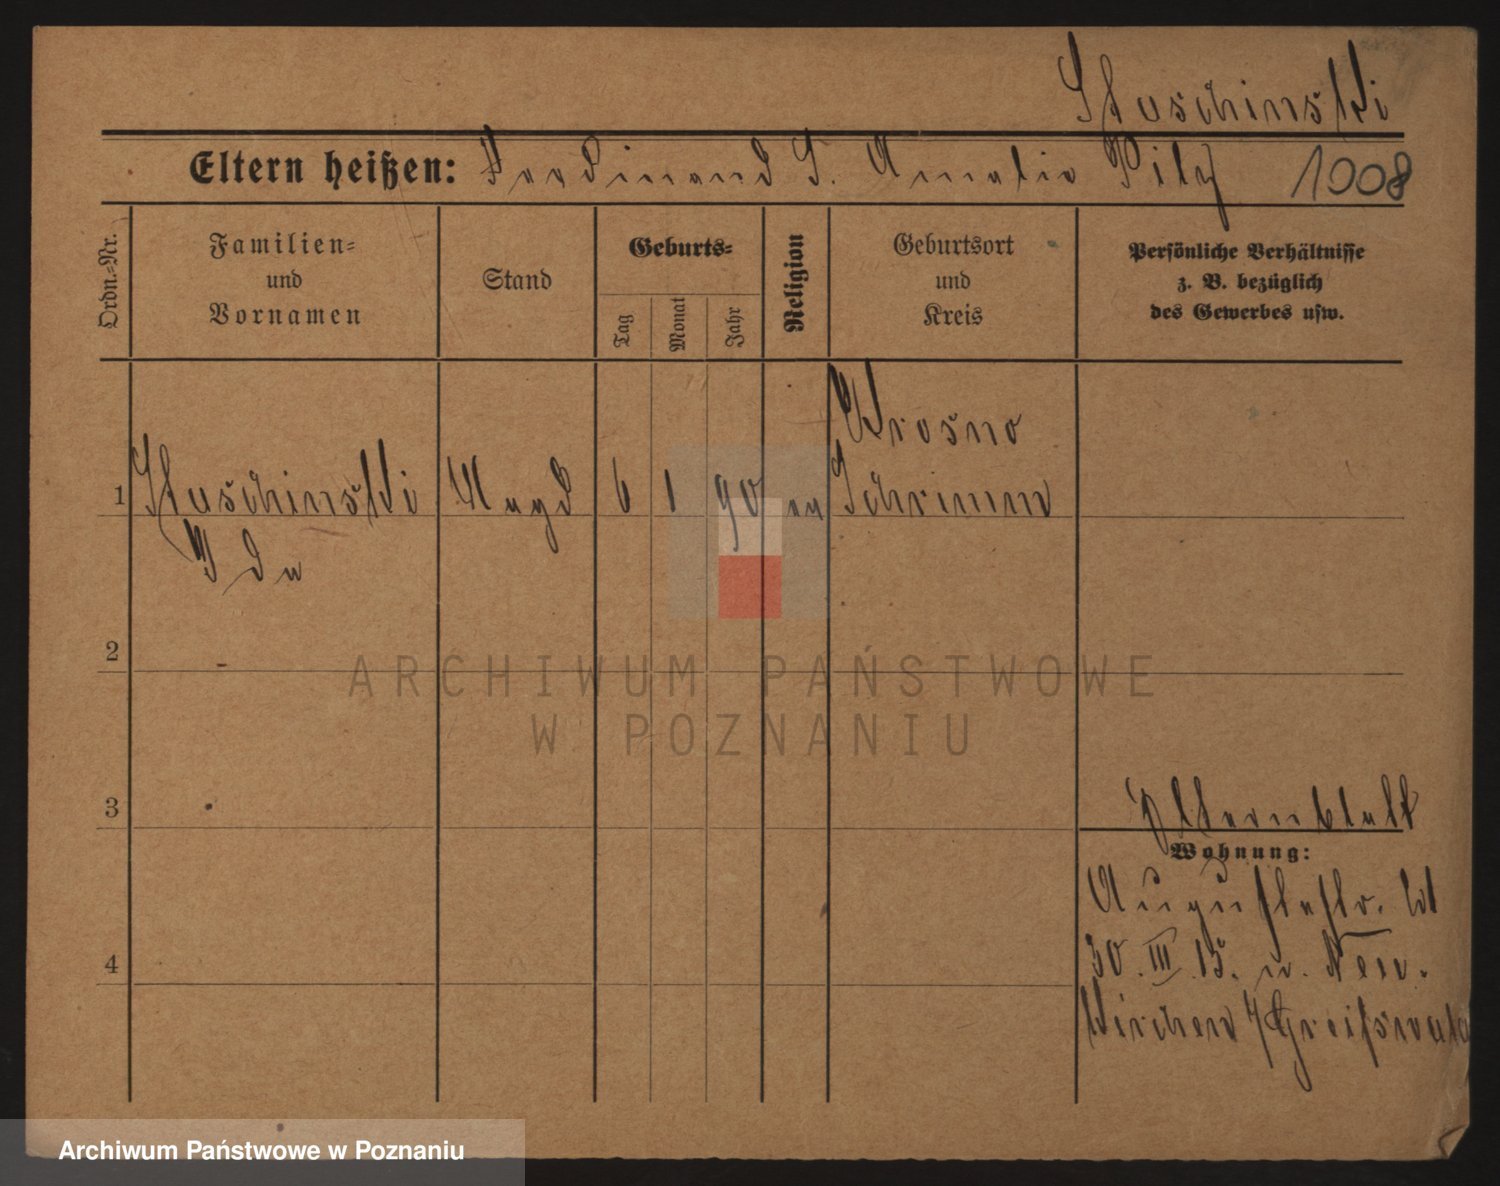 Stuschinski
Eltern heißen: Ferdinand S. Amalie Pilz 1008
Ordn.-Nr.
Familien-
und
Vornamen
Stand
Geburts-
Tag
Monat
Jahr
Religion
Geburtsort
und
Kreis
Persönliche Verhältnisse
z. B. bezüglich
des Gewerbes usw.
Krosno
1 Stuschinski Magd 6 1 90 ev Schrimm
Ida
2
ARCHIWUM PAŃSTWOWE
W POZNANIU
3
Elternblatt
Wohnung:
Augustastr.
4 30. III. 15. n. Neu-
kirchen / Greifswald
Archiwum Państwowe w Poznaniu